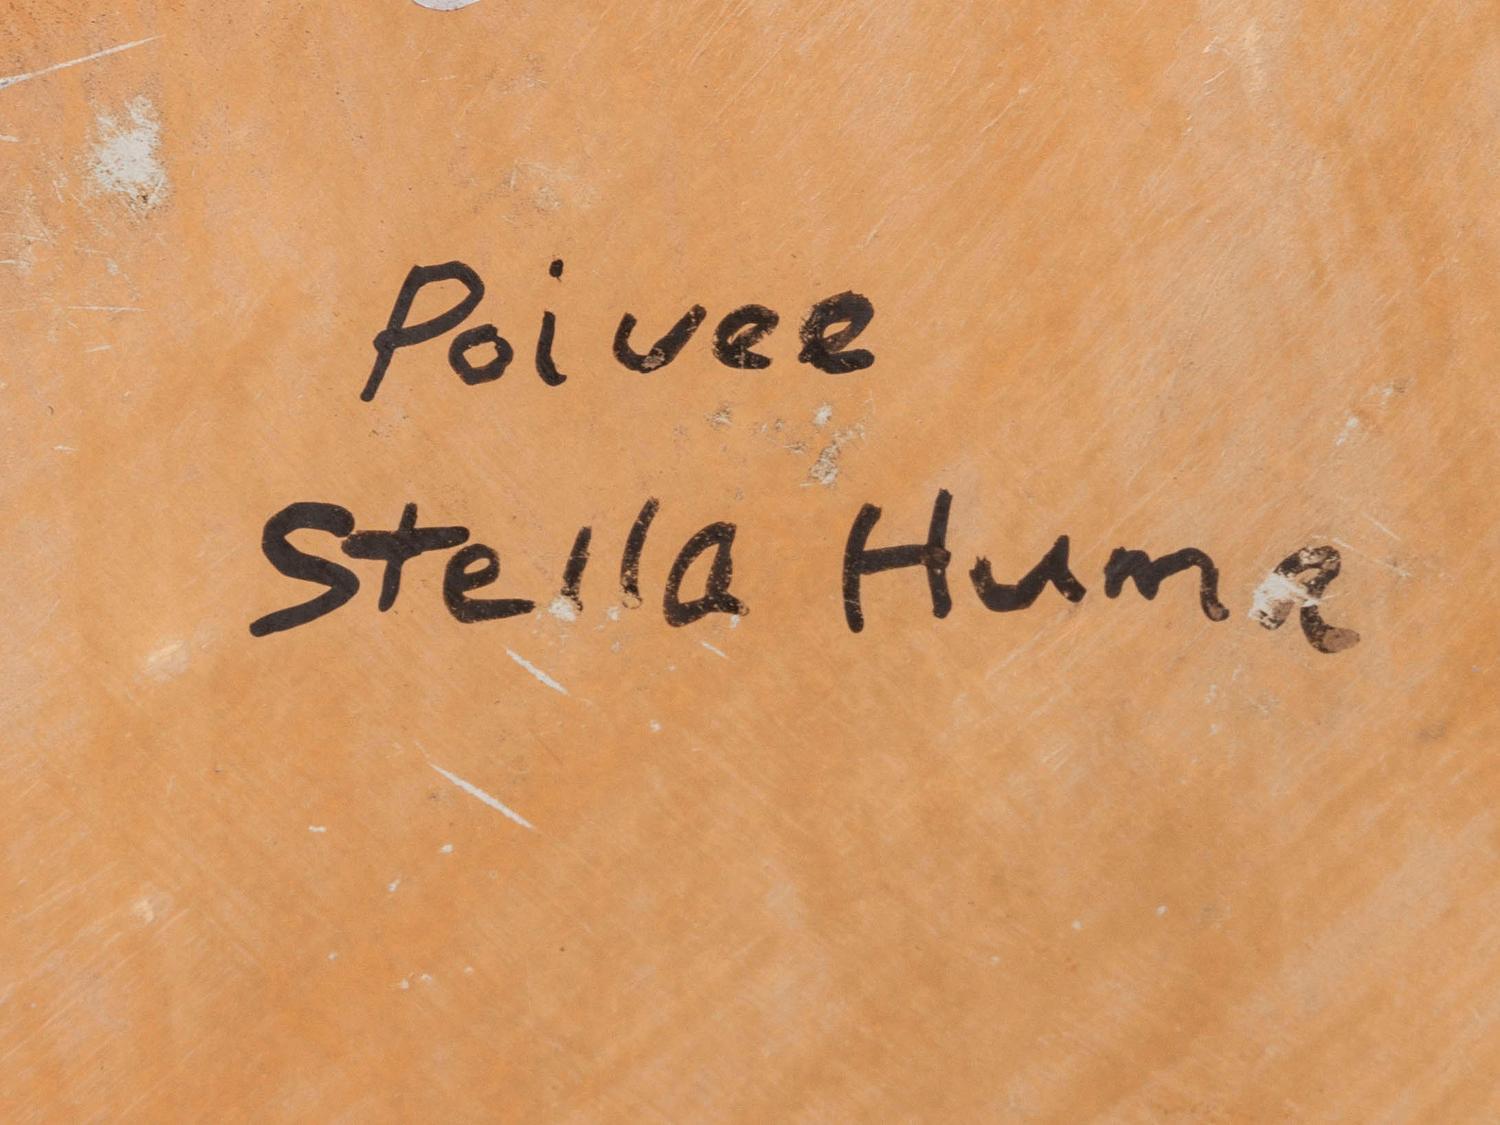 Poivee
Stella Huma